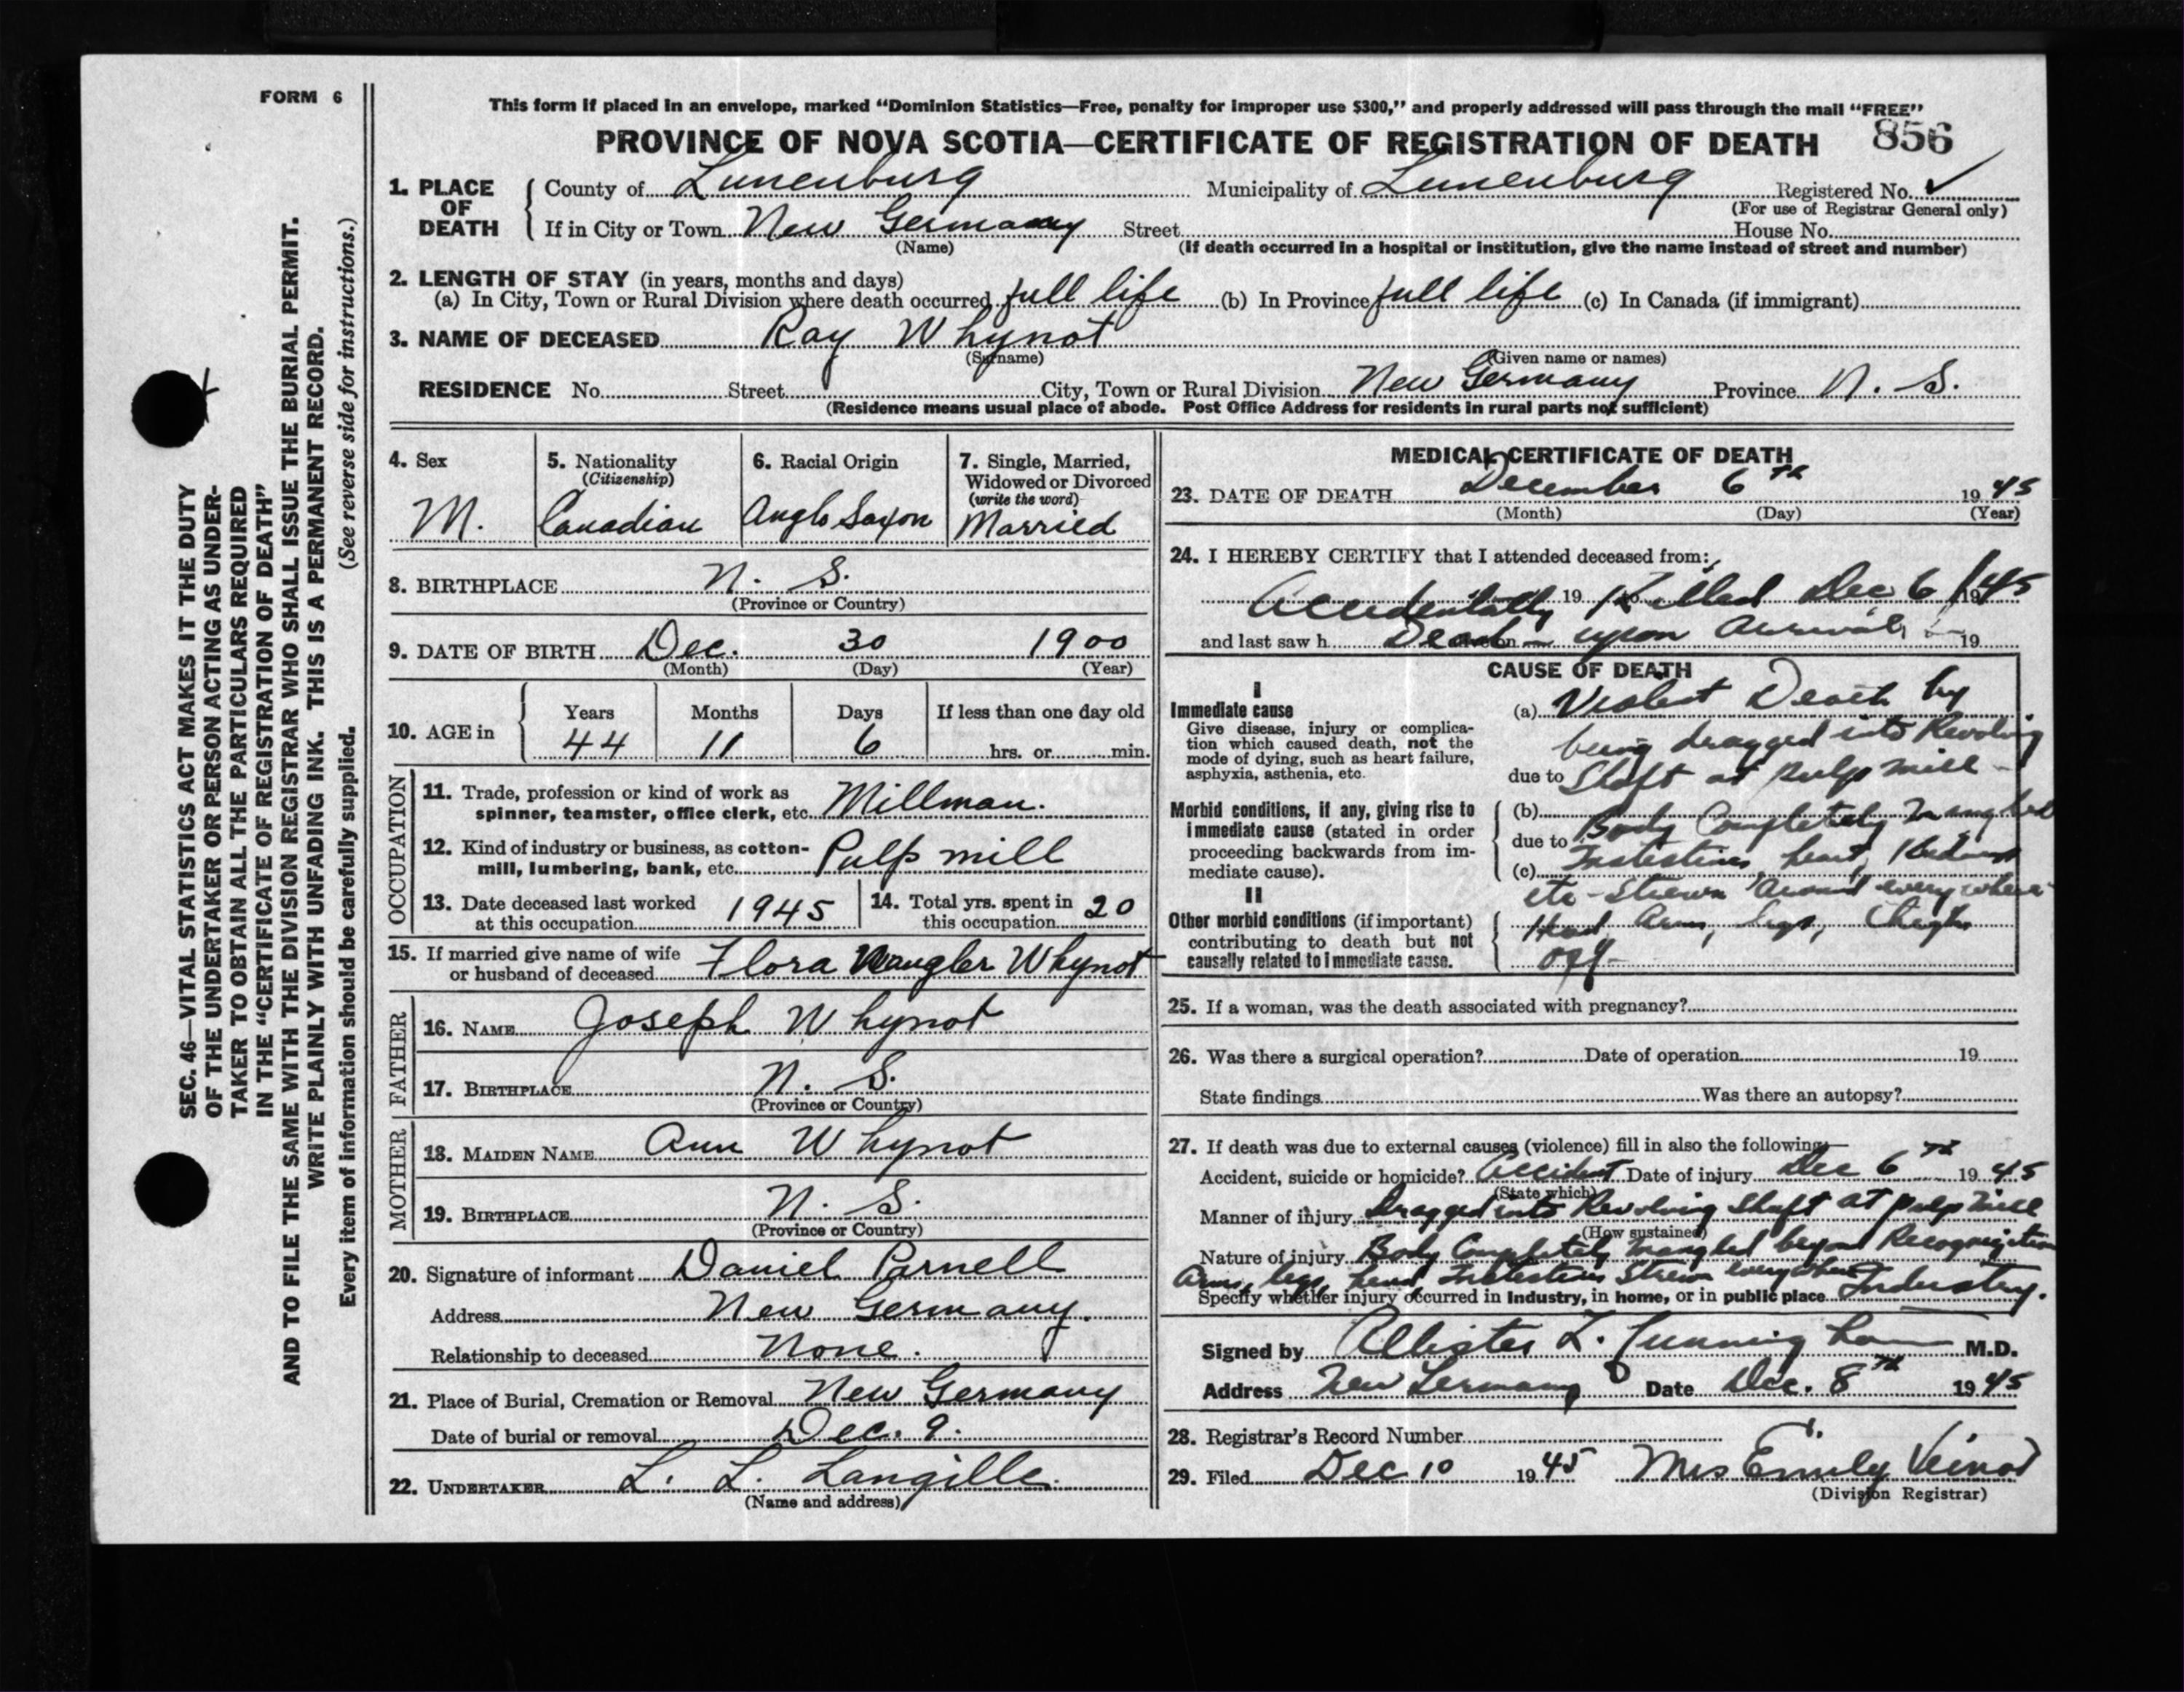 FORM 6
This form if placed in an envelope, marked "Dominion Statistics—Free, penalty for improper use $300," and properly addressed will pass through the mail "FREE"
PROVINCE OF NOVA SCOTIA—CERTIFICATE OF REGISTRATION OF DEATH 856
1. PLACE OF DEATH County of Lunenburg Municipality of Lunenburg Registered No. ✓
(For use of Registrar General only)
If in City or Town New Germany Street House No.
(Name) (If death occurred in a hospital or institution, give the name instead of street and number)
2. LENGTH OF STAY (in years, months and days)
(a) In City, Town or Rural Division where death occurred full life (b) In Province full life (c) In Canada (if immigrant)
3. NAME OF DECEASED Ray Whynot
(Surname) (Given name or names)
RESIDENCE No. Street City, Town or Rural Division New Germany Province N. S.
(Residence means usual place of abode. Post Office Address for residents in rural parts not sufficient)
4. Sex 5. Nationality 6. Racial Origin 7. Single, Married,
(Citizenship) Widowed or Divorced
(write the word)
M. Canadian Anglo Saxon Married
8. BIRTHPLACE N. S.
(Province or Country)
9. DATE OF BIRTH Dec. 30 1900
(Month) (Day) (Year)
10. AGE in Years Months Days If less than one day old
44 11 6 hrs. or min.
OCCUPATION
11. Trade, profession or kind of work as
spinner, teamster, office clerk, etc. Millman.
12. Kind of industry or business, as cotton-
mill, lumbering, bank, etc. Pulp mill
13. Date deceased last worked 14. Total yrs. spent in
at this occupation 1945 this occupation 20
15. If married give name of wife
or husband of deceased Flora Whynot
FATHER
16. NAME Joseph Whynot
17. BIRTHPLACE N. S.
(Province or Country)
MOTHER
18. MAIDEN NAME Ann Whynot
19. BIRTHPLACE N. S.
(Province or Country)
20. Signature of informant Daniel Parnell
Address New Germany.
Relationship to deceased None.
21. Place of Burial, Cremation or Removal New Germany
Date of burial or removal Dec. 9.
22. UNDERTAKER L. L. Langille.
(Name and address)
MEDICAL CERTIFICATE OF DEATH
23. DATE OF DEATH December 6th 1945
(Month) (Day) (Year)
24. I HEREBY CERTIFY that I attended deceased from:
Accidentally 19 Killed Dec 6 1945
and last saw h Dead upon arrival 19
CAUSE OF DEATH
I
Immediate cause
Give disease, injury or complica-
tion which caused death, not the
mode of dying, such as heart failure,
asphyxia, asthenia, etc.
(a) Violent Death by
being dragged into Revolving
due to Shaft at Pulp mill
Morbid conditions, if any, giving rise to
immediate cause (stated in order
proceeding backwards from im-
mediate cause).
(b)
due to Body Completely Mangled
(c) Intestines, heart, Kidneys
etc - Strewn around everywhere
II
Other morbid conditions (if important)
contributing to death but not
causally related to immediate cause.
Head, Arms, Legs,
off-
25. If a woman, was the death associated with pregnancy?
26. Was there a surgical operation? Date of operation 19
State findings Was there an autopsy?
27. If death was due to external causes (violence) fill in also the following:—
Accident, suicide or homicide? Accident Date of injury Dec 6th 1945
(State which)
Manner of injury Dragged into Revolving Shaft at pulp mill
(How sustained)
Nature of injury Body Completely mangled beyond Recognization
Arms, legs, head, Intestines Strewn everywhere
Specify whether injury occurred in Industry, in home, or in public place Industry.
Signed by Allister L. Cunningham M.D.
Address New Germany Date Dec. 8th 1945
28. Registrar's Record Number
29. Filed Dec 10 1945 Mrs Emily Veinot
(Division Registrar)
SEC. 46—VITAL STATISTICS ACT MAKES IT THE DUTY
OF THE UNDERTAKER OR PERSON ACTING AS UNDER-
TAKER TO OBTAIN ALL THE PARTICULARS REQUIRED
IN THE "CERTIFICATE OF REGISTRATION OF DEATH"
AND TO FILE THE SAME WITH THE DIVISION REGISTRAR WHO SHALL ISSUE THE BURIAL PERMIT.
WRITE PLAINLY WITH UNFADING INK. THIS IS A PERMANENT RECORD.
Every item of information should be carefully supplied. (See reverse side for instructions.)